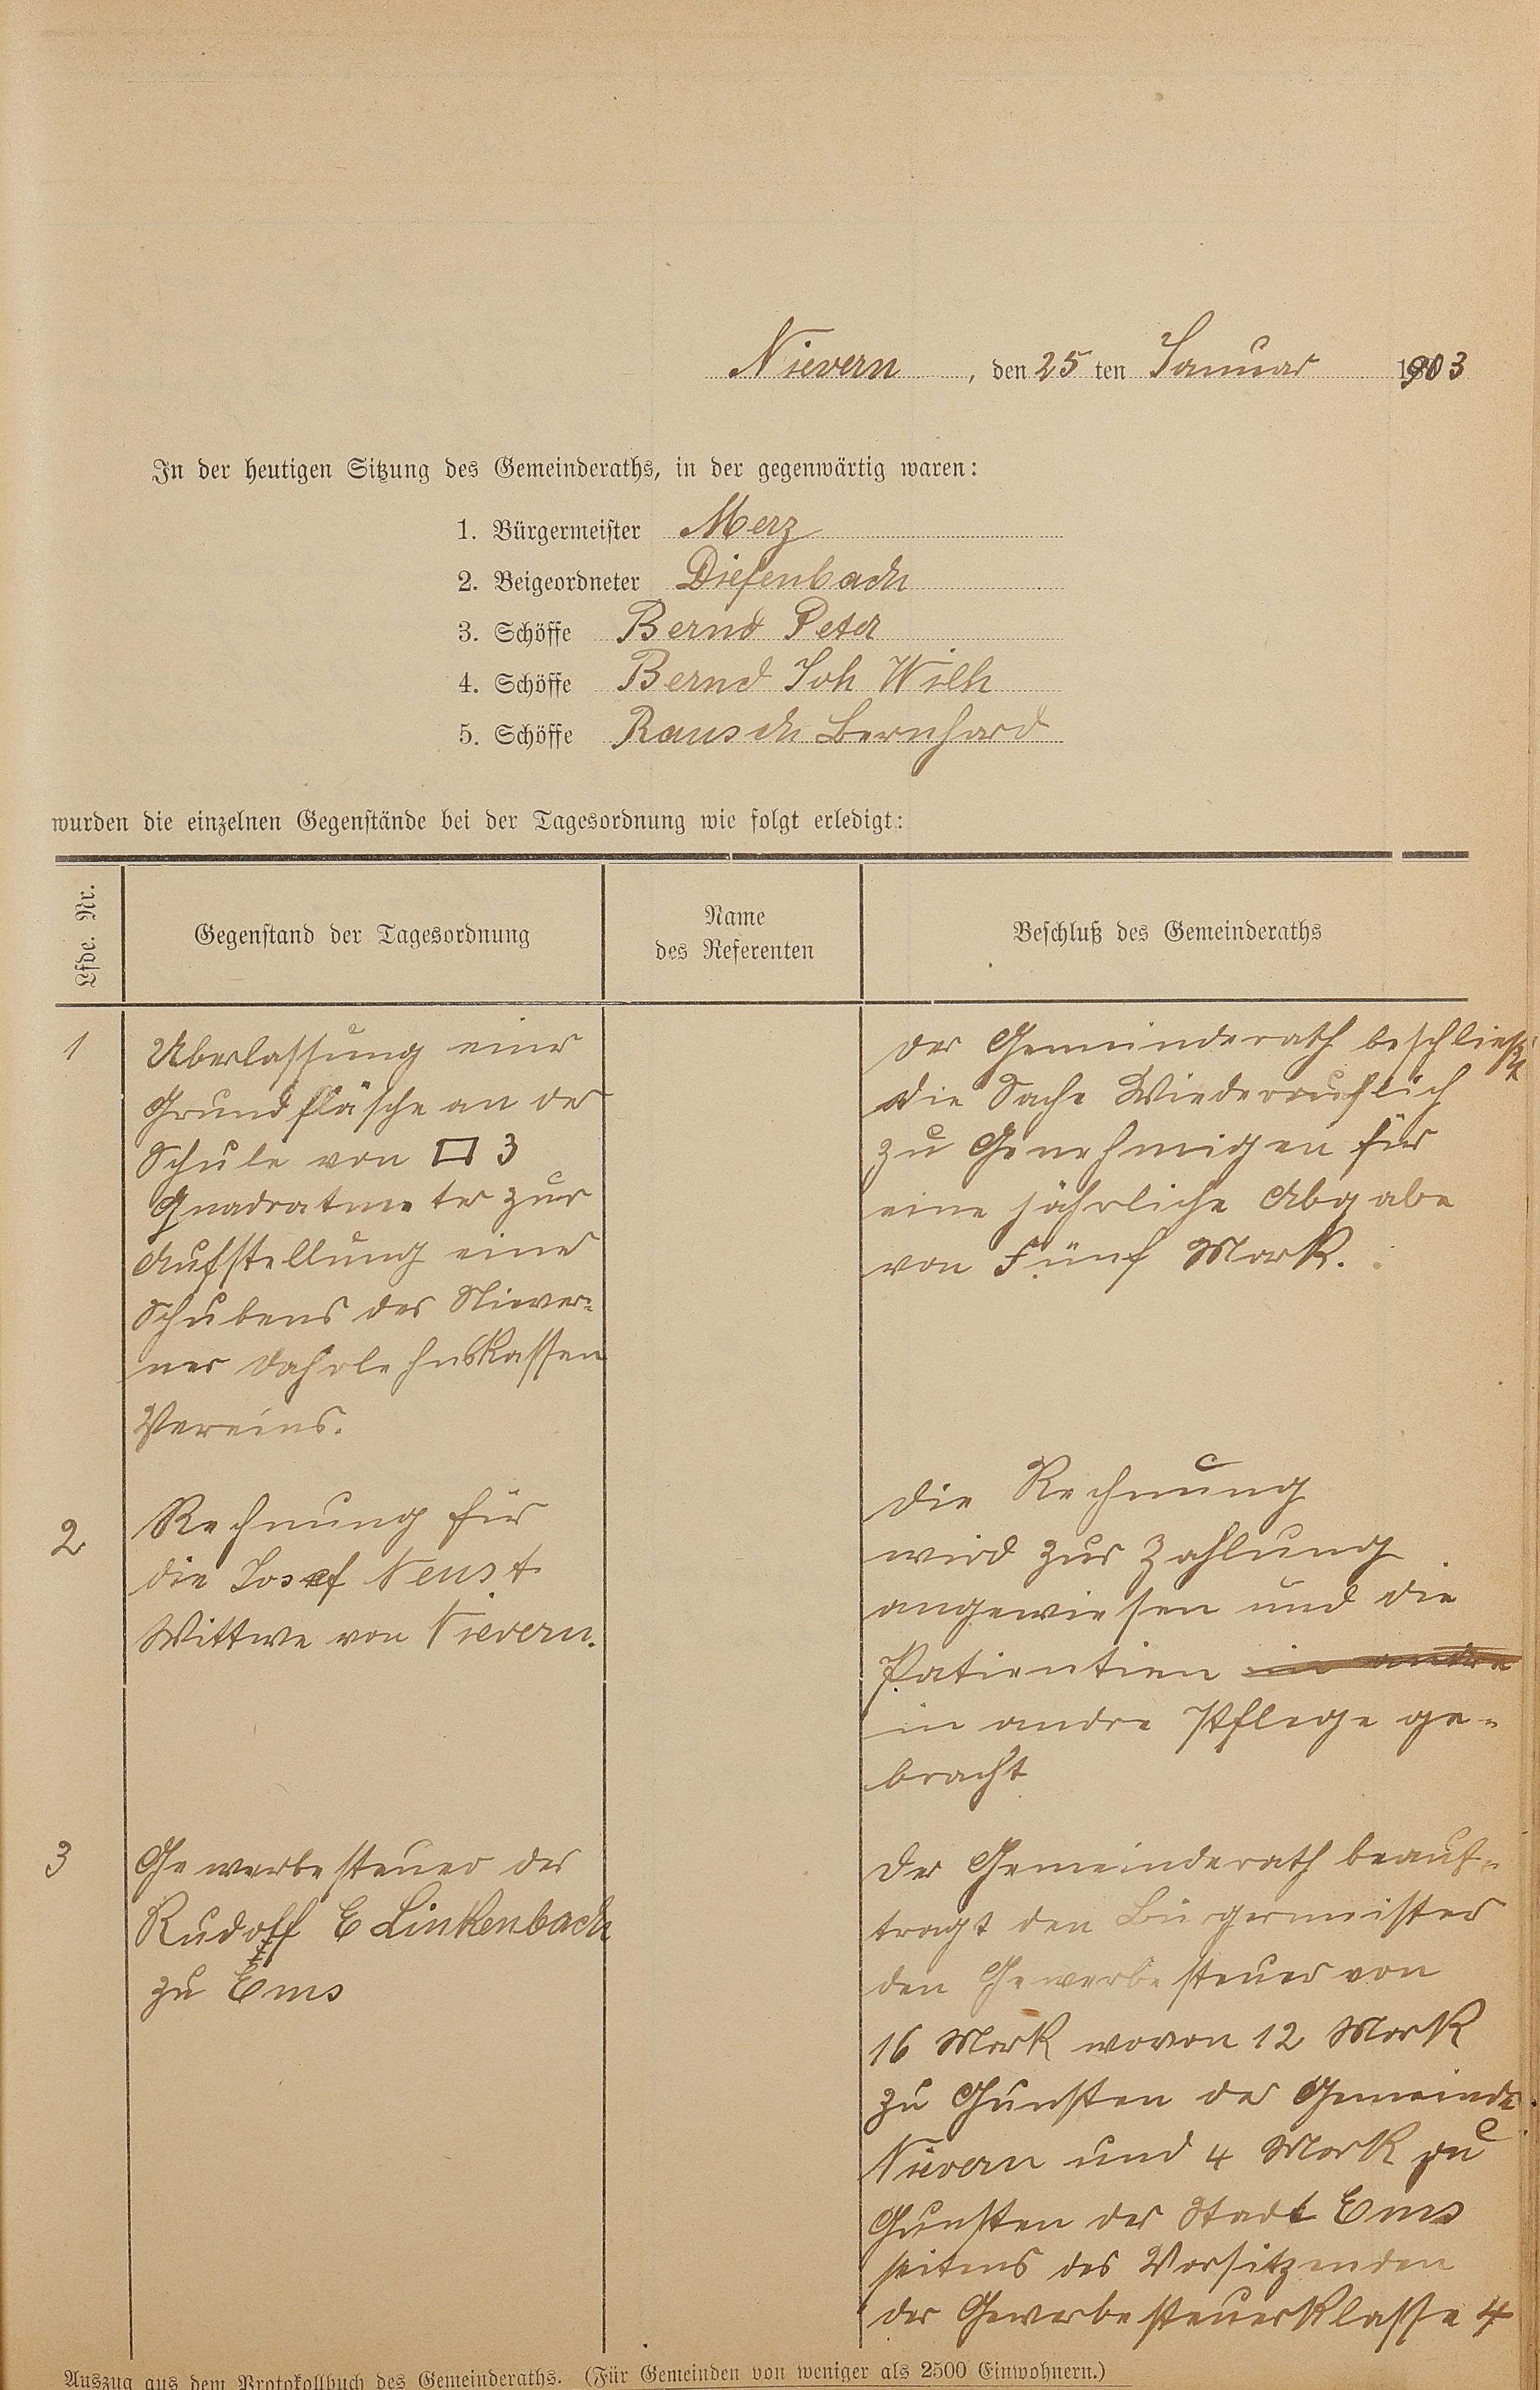 Nievern, den 25 ten Januar 1903
In der heutigen Sitzung des Gemeinderaths, in der gegenwärtig waren:
1. Bürgermeister Merz
2. Beigeordneter Diefenbach
3. Schöffe Bernd Peter
4. Schöffe Bernd Joh Wilh
5. Schöffe Rausch Bernhard
wurden die einzelnen Gegenstände bei der Tagesordnung wie folgt erledigt:
Lfde. Nr.
Gegenstand der Tagesordnung
Name
des Referenten
Beschluß des Gemeinderaths
1
Uberlassung einer
Grundfläsche an der
Schule von □ 3
Quadratmeter zur
Aufstellung einer
Schubens des Niever=
ner DahrlehnsKassen
Vereins.
der Gemeinderath beschließt
die Sache Wiederruflich
zu Genehmigen für
eine jährliche Abgabe
von Fünf Mark.
2
Rechnung für
die Josef Neust
Wittwe von Nievern.
die Rechnung
wird zur Zahlung
angewiesen und die
Patientien in andre
in andre Pflege ge=
bracht
3
Gewerbesteuer des
Rudolf E Linkenbach
zu Ems
Der Gemeinderath beauf=
tragt den Bürgermeister
den Gewerbesteuer von
16 Mark wovon 12 Mark
zu Gunsten der Gemeinde
Nievern und 4 Mark zu
Gunsten der Stadt Ems
seitens des Vorsitzenden
der GewerbesteuerKlasse 4
Auszug aus dem Protokollbuch des Gemeinderaths. (Für Gemeinden von weniger als 2500 Einwohnern.)